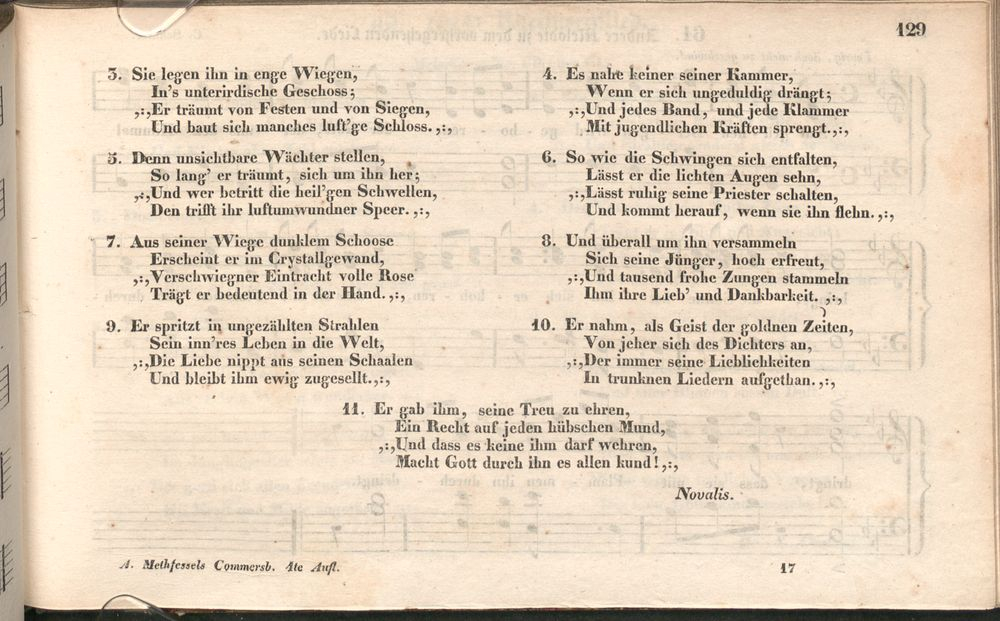 129
3. Sie legen ihn in enge Wiegen,
In's unterirdische Geschoss;
,:,Er träumt von Festen und von Siegen,
Und baut sich manches luft'ge Schloss.,:,
4. Es nahe keiner seiner Kammer,
Wenn er sich ungeduldig drängt;
,:,Und jedes Band, und jede Klammer
Mit jugendlichen Kräften sprengt.,:,
5. Denn unsichtbare Wächter stellen,
So lang' er träumt, sich um ihn her;
,:,Und wer betritt die heil'gen Schwellen,
Den trifft ihr luftumwundner Speer.,:,
6. So wie die Schwingen sich entfalten,
Lässt er die lichten Augen sehn,
,:,Lässt ruhig seine Priester schalten,
Und kommt herauf, wenn sie ihn flehn.,:,
7. Aus seiner Wiege dunklem Schoose
Erscheint er im Crystallgewand,
,:,Verschwiegner Eintracht volle Rose
Trägt er bedeutend in der Hand.,:,
8. Und überall um ihn versammeln
Sich seine Jünger, hoch erfreut,
,:,Und tausend frohe Zungen stammeln
Ihm ihre Lieb' und Dankbarkeit.,:,
9. Er spritzt in ungezählten Strahlen
Sein inn'res Leben in die Welt,
,:,Die Liebe nippt aus seinen Schaalen
Und bleibt ihm ewig zugesellt.,:,
10. Er nahm, als Geist der goldnen Zeiten,
Von jeher sich des Dichters an,
,:,Der immer seine Lieblichkeiten
In trunknen Liedern aufgethan.,:,
11. Er gab ihm, seine Treu zu ehren,
Ein Recht auf jeden hübschen Mund,
,:,Und dass es keine ihm darf wehren,
Macht Gott durch ihn es allen kund!,:,
Novalis.
A. Methfessels Commersb. 4te Aufl.
17